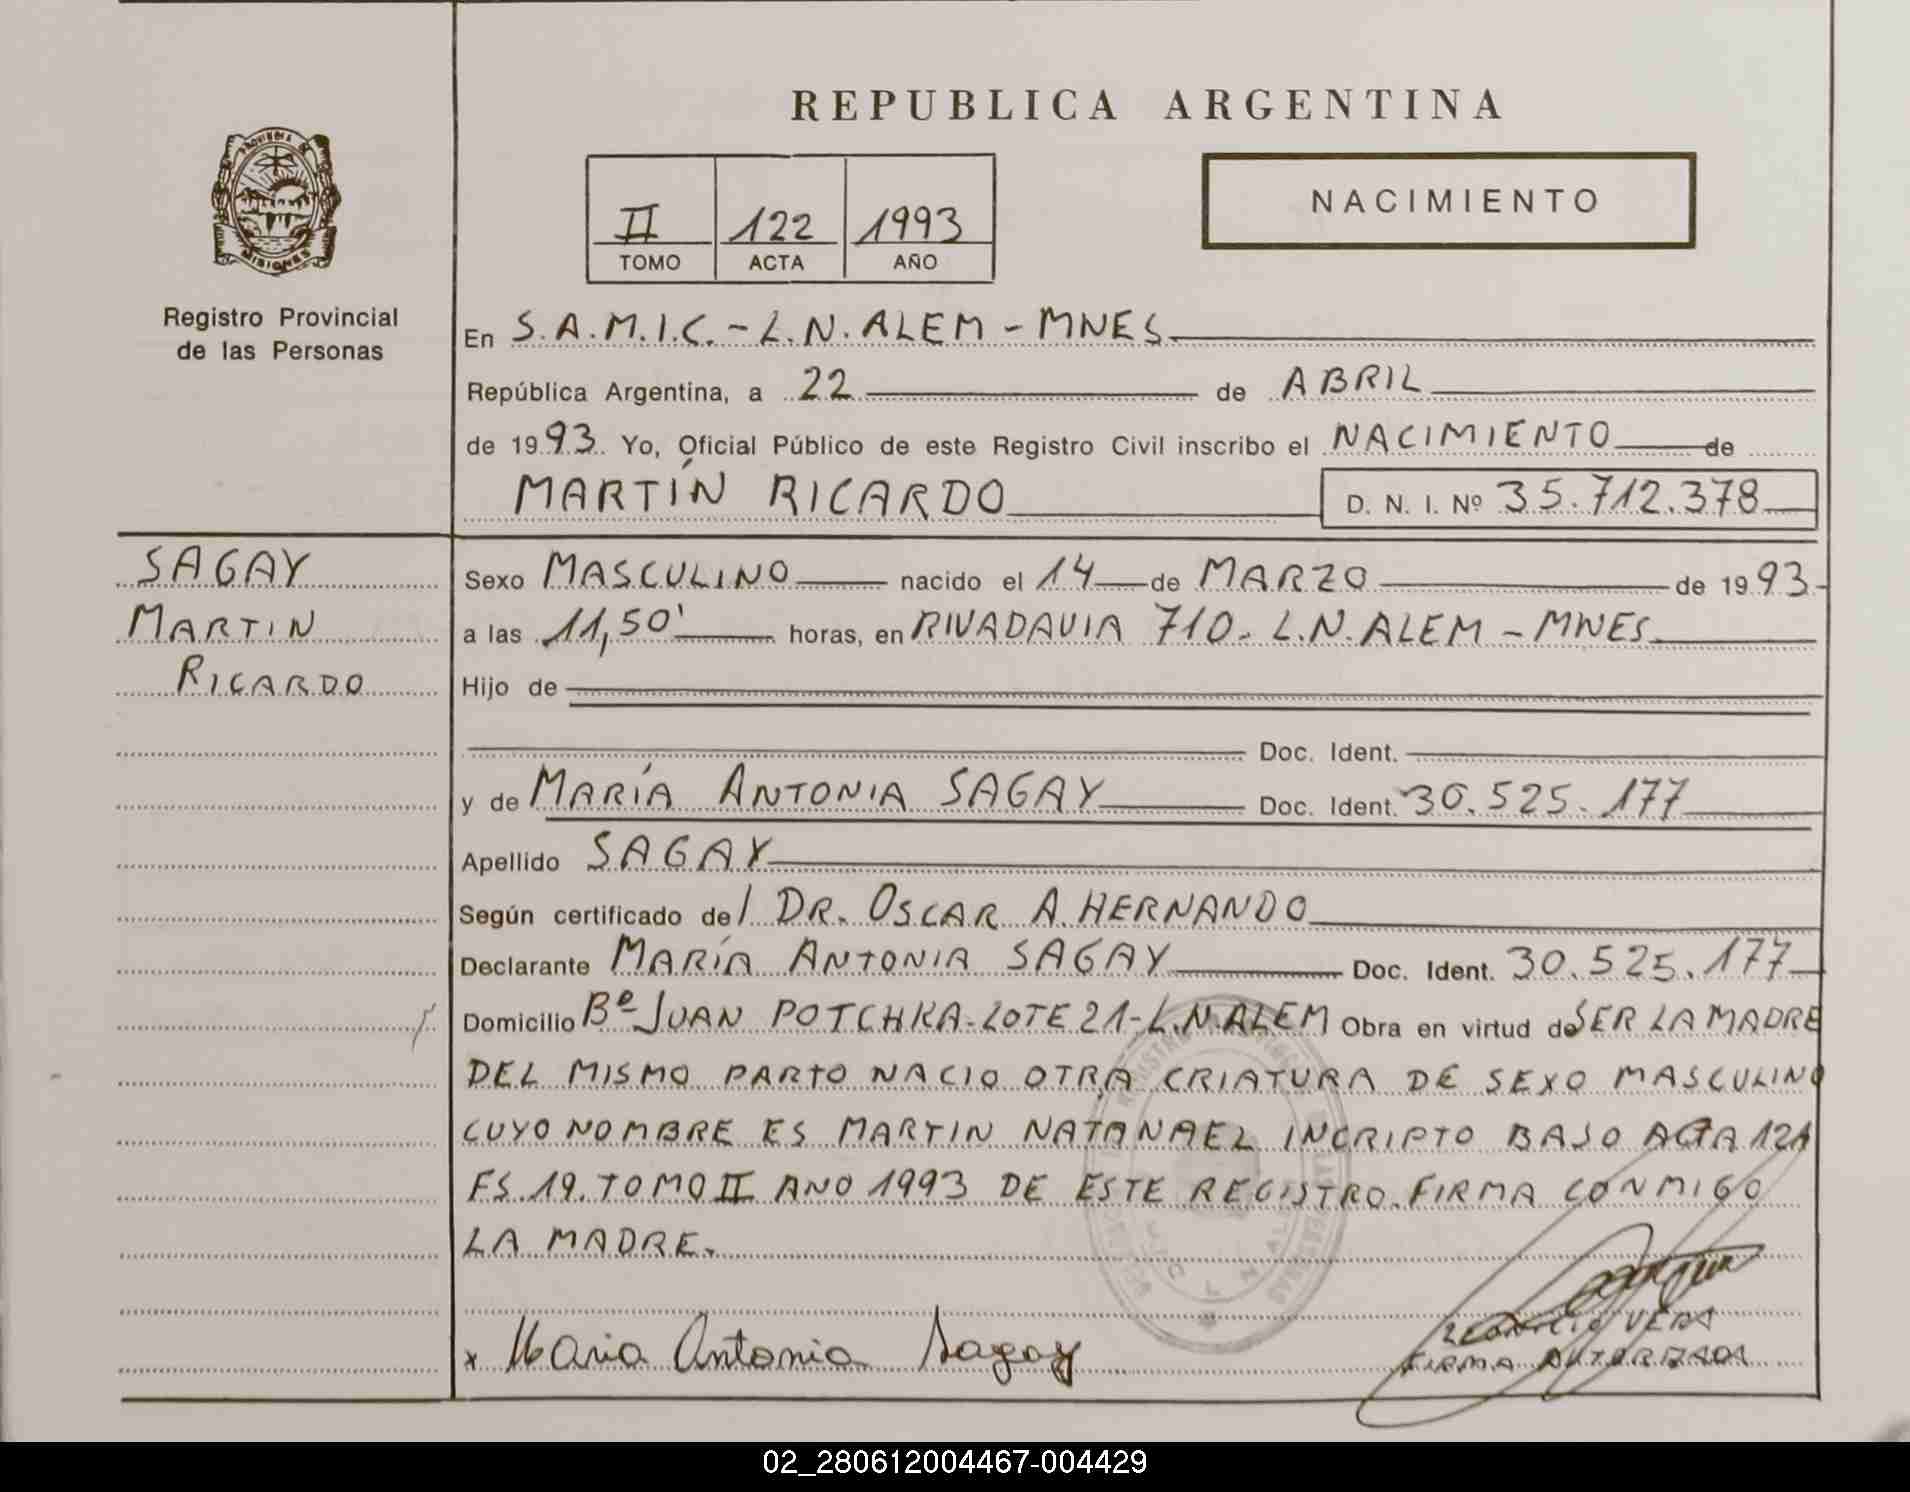 REPUBLICA ARGENTINA
PROVINCIA DE
MISIONES
Registro Provincial
de las Personas
II 122 1993
TOMO ACTA AÑO
NACIMIENTO
En S.A.M.I.C. - L.N. ALEM - MNES
República Argentina, a 22 de ABRIL
de 1993. Yo, Oficial Público de este Registro Civil inscribo el NACIMIENTO de
MARTÍN RICARDO D. N. I. Nº 35.712.378
SAGAY
MARTIN
RICARDO
Sexo MASCULINO nacido el 14 de MARZO de 1993
a las 11,50' horas, en RIVADAVIA 710. L.N. ALEM - MNES
Hijo de
Doc. Ident.
y de MARÍA ANTONIA SAGAY Doc. Ident. 30.525.177
Apellido SAGAY
Según certificado del DR. OSCAR A. HERNANDO
Declarante MARÍA ANTONIA SAGAY Doc. Ident. 30.525.177
Domicilio Bº JUAN POTCHKA-LOTE 21-L.N.ALEM Obra en virtud de SER LA MADRE
DEL MISMO PARTO NACIO OTRA CRIATURA DE SEXO MASCULINO
CUYO NOMBRE ES MARTIN NATANAEL INCRIPTO BAJO ACTA 121
FS.19. TOMO II ANO 1993 DE ESTE REGISTRO. FIRMA CONMIGO
LA MADRE.
x Maria Antonia Sagay
VERA
FIRMA AUTORIZADA
02_280612004467-004429